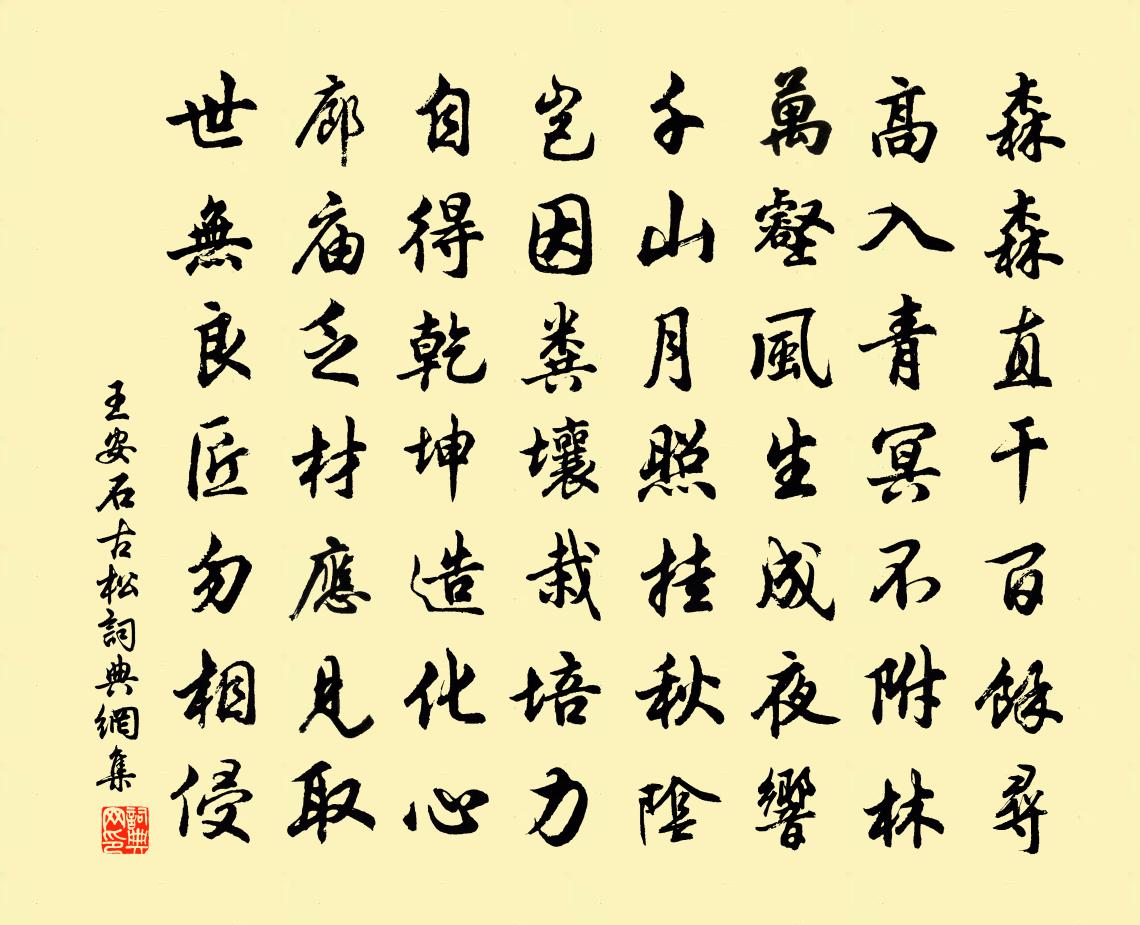 森森直干百餘尋
高入青冥不附林
萬壑風生成夜響
千山月照挂秋陰
岂因粪壤栽培力
自得乾坤造化心
廊庙乏材應見取
世無良匠勿相侵
王安石古松詞典網集
詞典网印